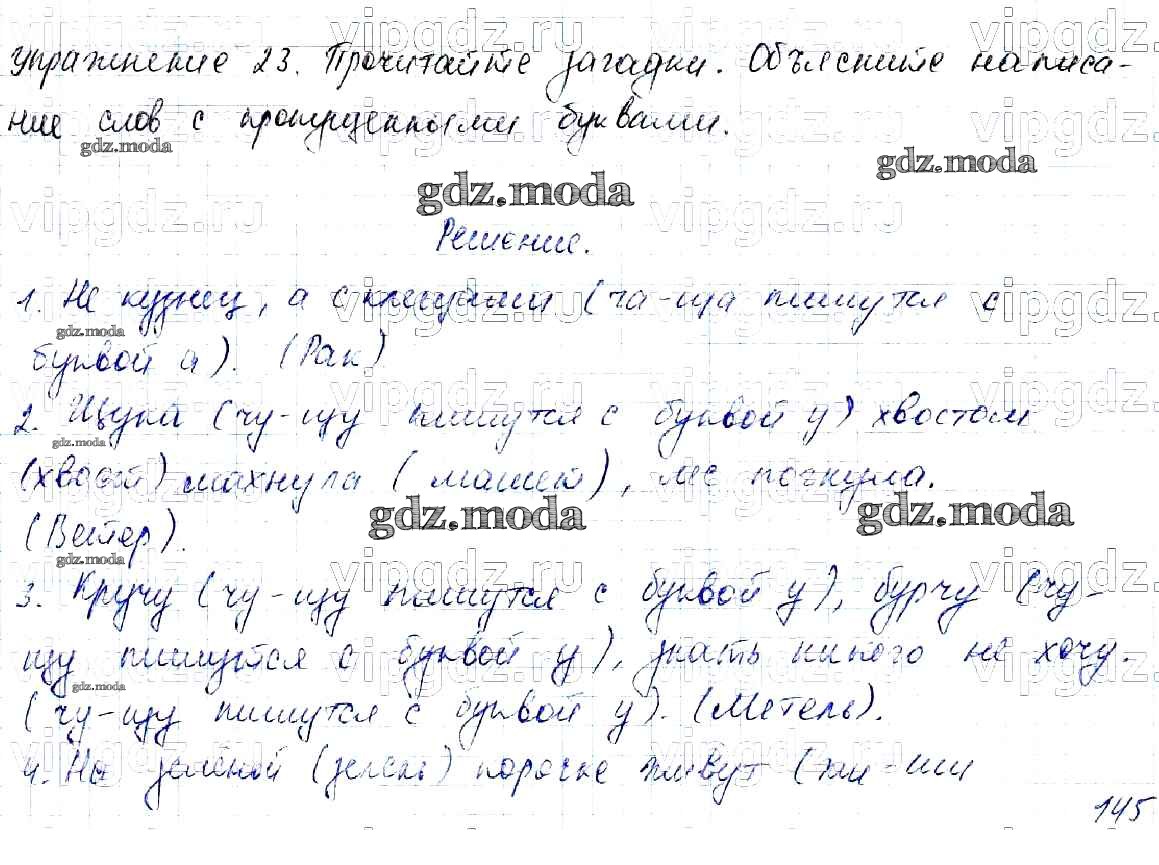 Упражнение 23. Прочитайте загадки. Объясните написа-
ние слов с пропущенными буквами.
gdz.moda
gdz.moda
gdz.moda
Решение.
1. Не кузнец, а с клещами (ча-ща пишутся с
gdz.moda
буквой а). (Рак)
2. Щука (чу-щу пишутся с буквой у) хвостом
gdz.moda
(хвост) махнула (машет), лес погнула.
gdz.moda
gdz.moda
(Ветер).
gdz.moda
3. Кручу (чу-щу пишутся с буквой у), бурчу (чу-
щу пишутся с буквой у), знать никого не хочу.
gdz.moda
(чу-щу пишутся с буквой у). (Метель).
4. На зелёной (зелень) породке живут (жи-ши
145
vipgdz.ru